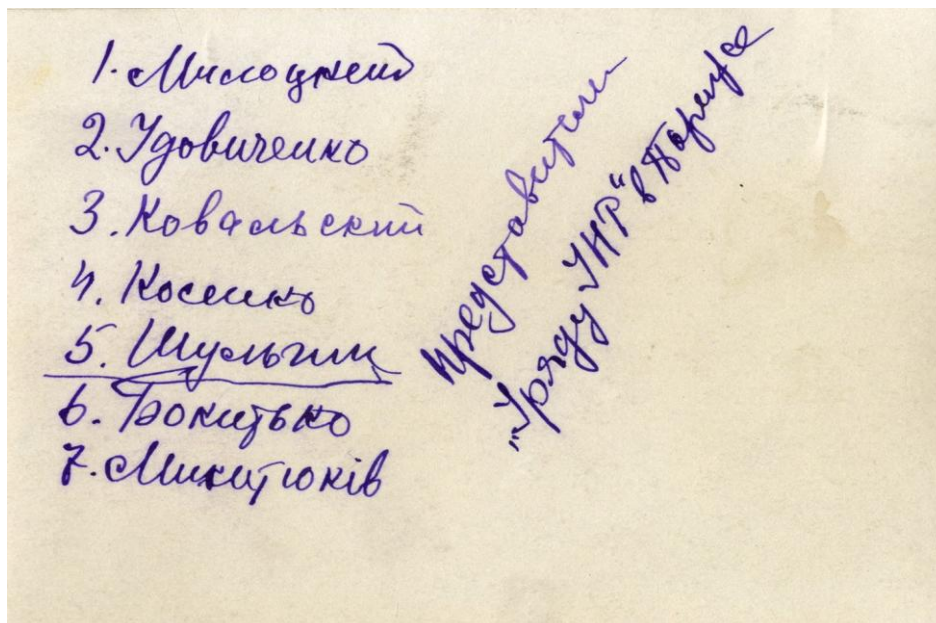 1. Милоцкий
2. Удовиченко
3. Ковальский
4. Косенко
5. Шульгин
6. Бокитько
7. Микитюків
Представители
„Уряду УНР" в Париже